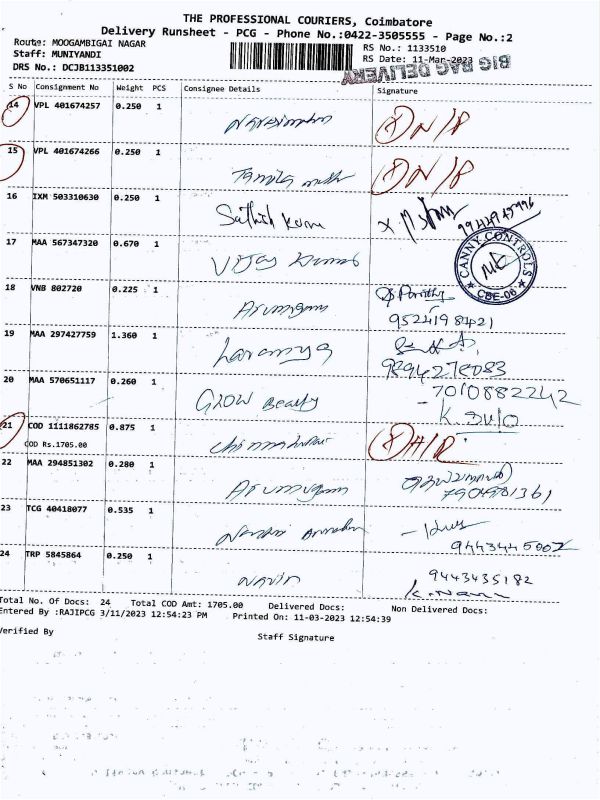 THE PROFESSIONAL COURIERS, Coimbatore
Delivery Runsheet - PCG - Phone No.:0422-3505555 - Page No.:2
Route: MOOGAMBIGAI NAGAR
RS No.: 1133510
Staff: MUNIYANDI
RS Date: 11-Mar-2023
DRS No.: DCJB113351002
BIG BAG DELIVERY
S No Consignment No Weight PCS Consignee Details Signature
14 VPL 401674257 0.250 1 N/R
15 VPL 401674266 0.250 1 N/R
16 IXM 503310630 0.250 1 Sathish Kumar
17 MAA 567347320 0.670 1 Vijay Kumar
CANNY CONTROLS
CBE-06
18 VNB 802720 0.225 1 Arumugam
9524198421
19 MAA 297427759 1.360 1
20 MAA 570651117 0.260 1 GLOW Beauty 7010882242
21 COD 1111862785 0.875 1
COD Rs.1705.00
22 MAA 294851302 0.280 1 Arumugam
23 TCG 40418077 0.535 1
24 TRP 5845864 0.250 1 Navin 9443435182
Total No. Of Docs: 24 Total COD Amt: 1705.00 Delivered Docs: Non Delivered Docs:
Entered By :RAJIPCG 3/11/2023 12:54:23 PM Printed On: 11-03-2023 12:54:39
Verified By
Staff Signature